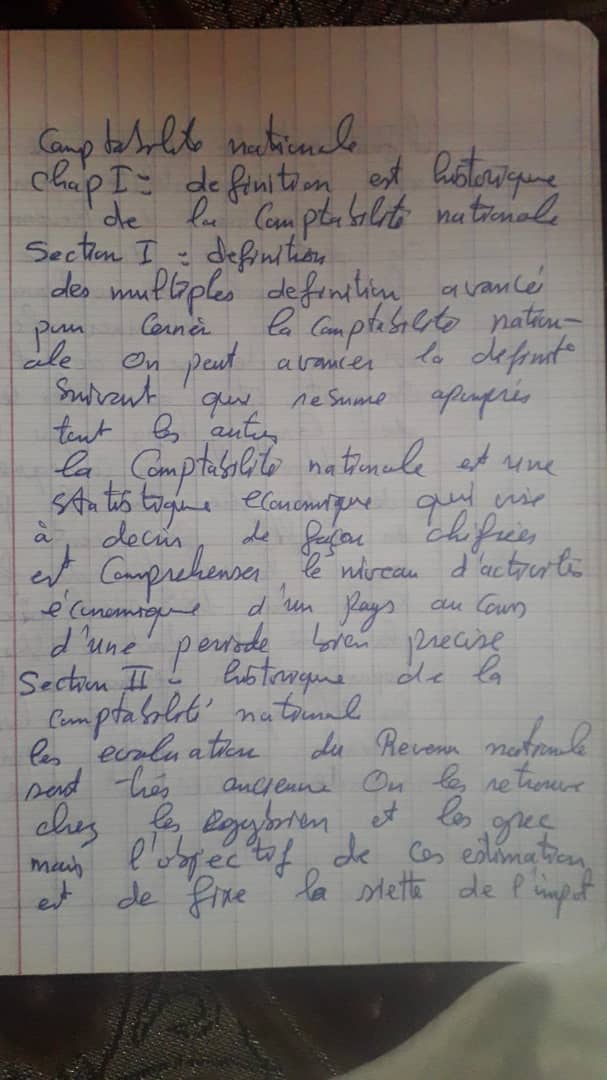 Comptabilité nationale
Chap I = definition est historique
de la Comptabilité nationale
Section I = definition
des multiples definition avancé
pour Cernèr la Comptabilité natio-
ale On peut avancer la definit°
Suivant que resume apeuprés
tout les autres
la Comptabilité nationale est une
statistique economique qui vise
à decrir de façon chifrées
est Comprehenser le niveau d'activités
économique d'un Pays au Cours
d'une periode bien precise
Section II = historique de la
Comptabilité national
les evaluation du Revenu nationale
sont très ancienne On les retrouve
chez les egyptien et les grec
mais l'objectif de Ces estimation
est de fixe la siette de l'impot